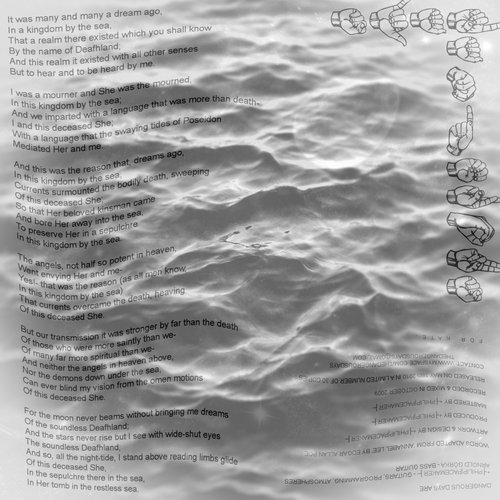 It was many and many a dream ago,
In a kingdom by the sea,
That a realm there existed which you shall know
By the name of Deafhland;
And this realm it existed with all other senses
But to hear and to be heard by me.
I was a mourner and She was the mourned,
In this kingdom by the sea;
And we imparted with a language that was more than death-
I and this deceased She;
With a language that the swaying tides of Poseidon
Mediated Her and me.
And this was the reason that, dreams ago,
In this kingdom by the sea,
Currents surmounted the bodily death, sweeping
Of this deceased She;
So that Her beloved kinsman came
And bore Her away into the sea,
To preserve Her in a sepulchre
In this kingdom by the sea.
The angels, not half so potent in heaven,
Went envying Her and me-
Yes!- that was the reason (as all men know,
In this kingdom by the sea)
That currents overcame the death, heaving
Of this deceased She.
But our transmission it was stronger by far than the death
Of those who were more saintly than we-
Of many far more spiritual than we-
And neither the angels in heaven above,
Nor the demons down under the sea,
Can ever blind my vision from the omen motions
Of this deceased She.
For the moon never beams without bringing me dreams
Of the soundless Deafhland;
And the stars never rise but I see with wide-shut eyes
The soundless Deafhland;
And so, all the night-tide, I stand above reading limbs glide
Of this deceased She,
In the sepulchre there in the sea,
In Her tomb in the restless sea.
FOR KATE
RECORDED & MIXED IN OCTOBER 2009
WORDS ADAPTED FROM ANNABEL LEE BY EDGAR ALLAN POE